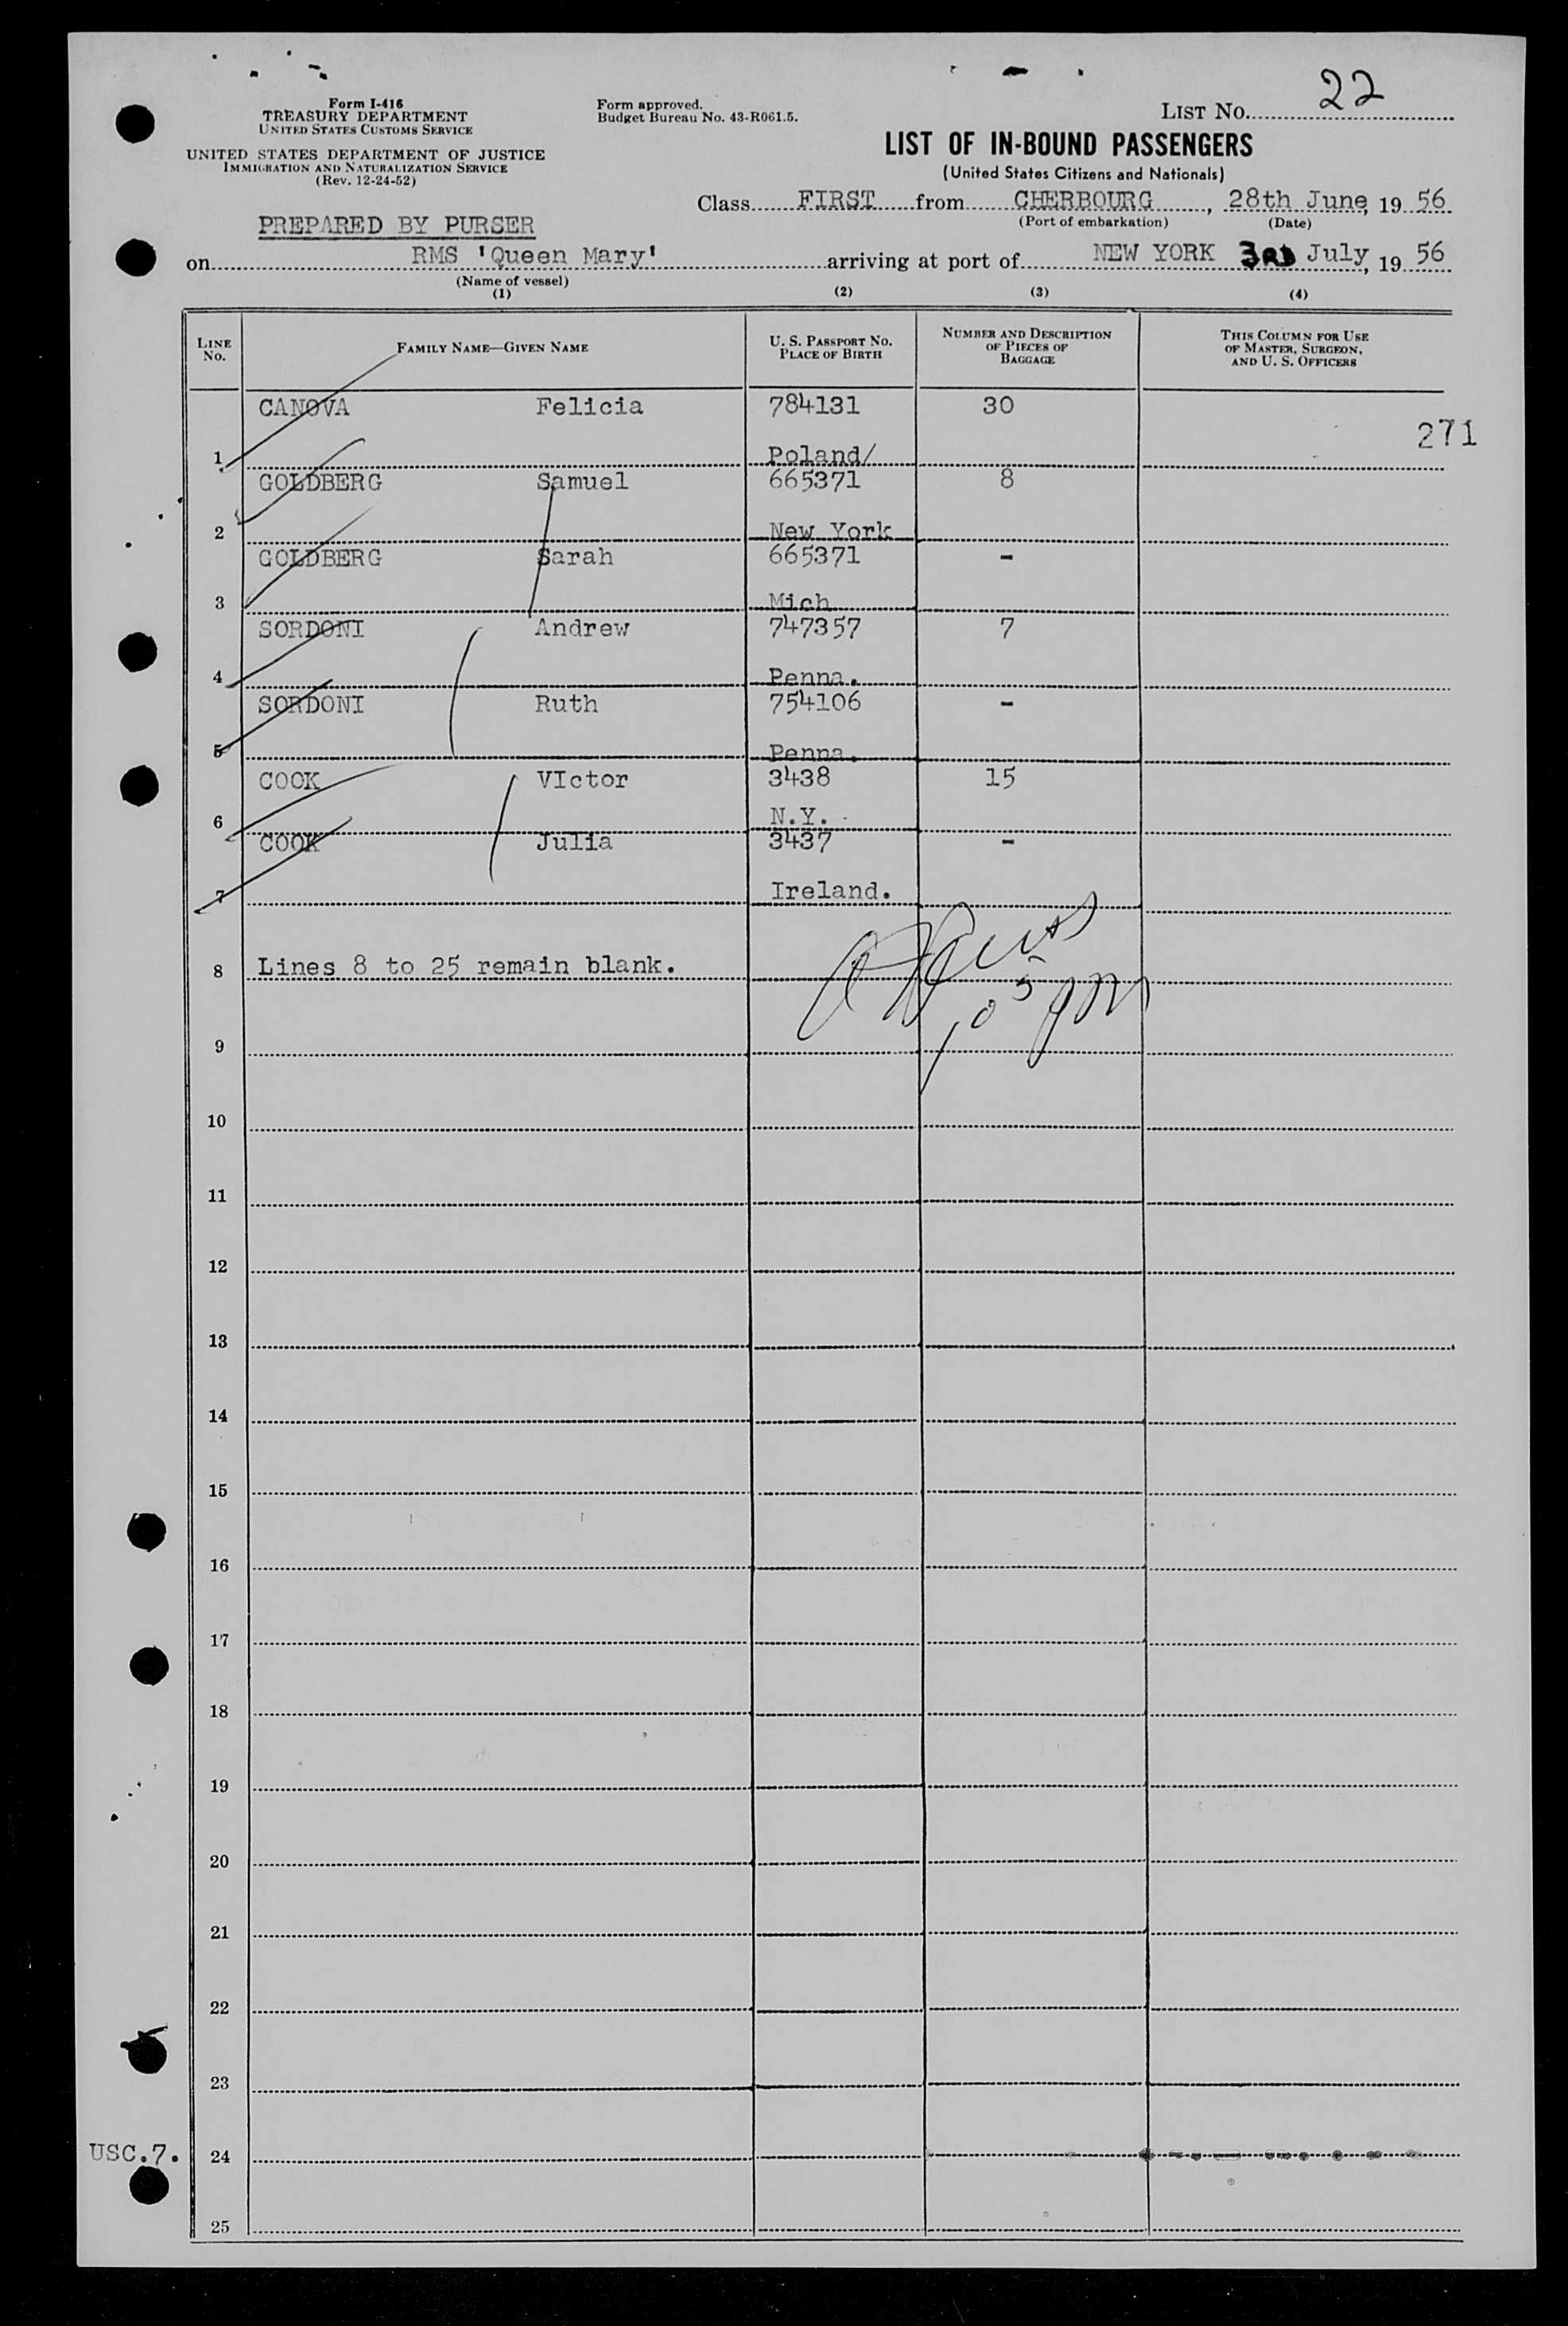 Form I-416
TREASURY DEPARTMENT
UNITED STATES CUSTOMS SERVICE
UNITED STATES DEPARTMENT OF JUSTICE
IMMIGRATION AND NATURALIZATION SERVICE
(Rev. 12-24-52)
Form approved.
Budget Bureau No. 43-R061.5.
LIST No. 22
LIST OF IN-BOUND PASSENGERS
(United States Citizens and Nationals)
Class FIRST from CHERBOURG, 28th June, 19 56
(Port of embarkation) (Date)
PREPARED BY PURSER
on RMS 'Queen Mary' arriving at port of NEW YORK 3RD July, 19 56
(Name of vessel)
(1) (2) (3) (4)
LINE No. FAMILY NAME—GIVEN NAME U. S. PASSPORT No. PLACE OF BIRTH NUMBER AND DESCRIPTION OF PIECES OF BAGGAGE THIS COLUMN FOR USE OF MASTER, SURGEON, AND U. S. OFFICERS
CANOVA Felicia 784131 30
271
1 Poland/
GOLDBERG Samuel 665371 8
2 New York
GOLDBERG Sarah 665371 -
3 Mich
SORDONI Andrew 747357 7
4 Penna.
SORDONI Ruth 754106 -
5 Penna.
COOK VIctor 3438 15
6 N.Y.
COOK Julia 3437 -
7 Ireland.
8 Lines 8 to 25 remain blank.
9
10
11
12
13
14
15
16
17
18
19
20
21
22
23
USC.7. 24
25